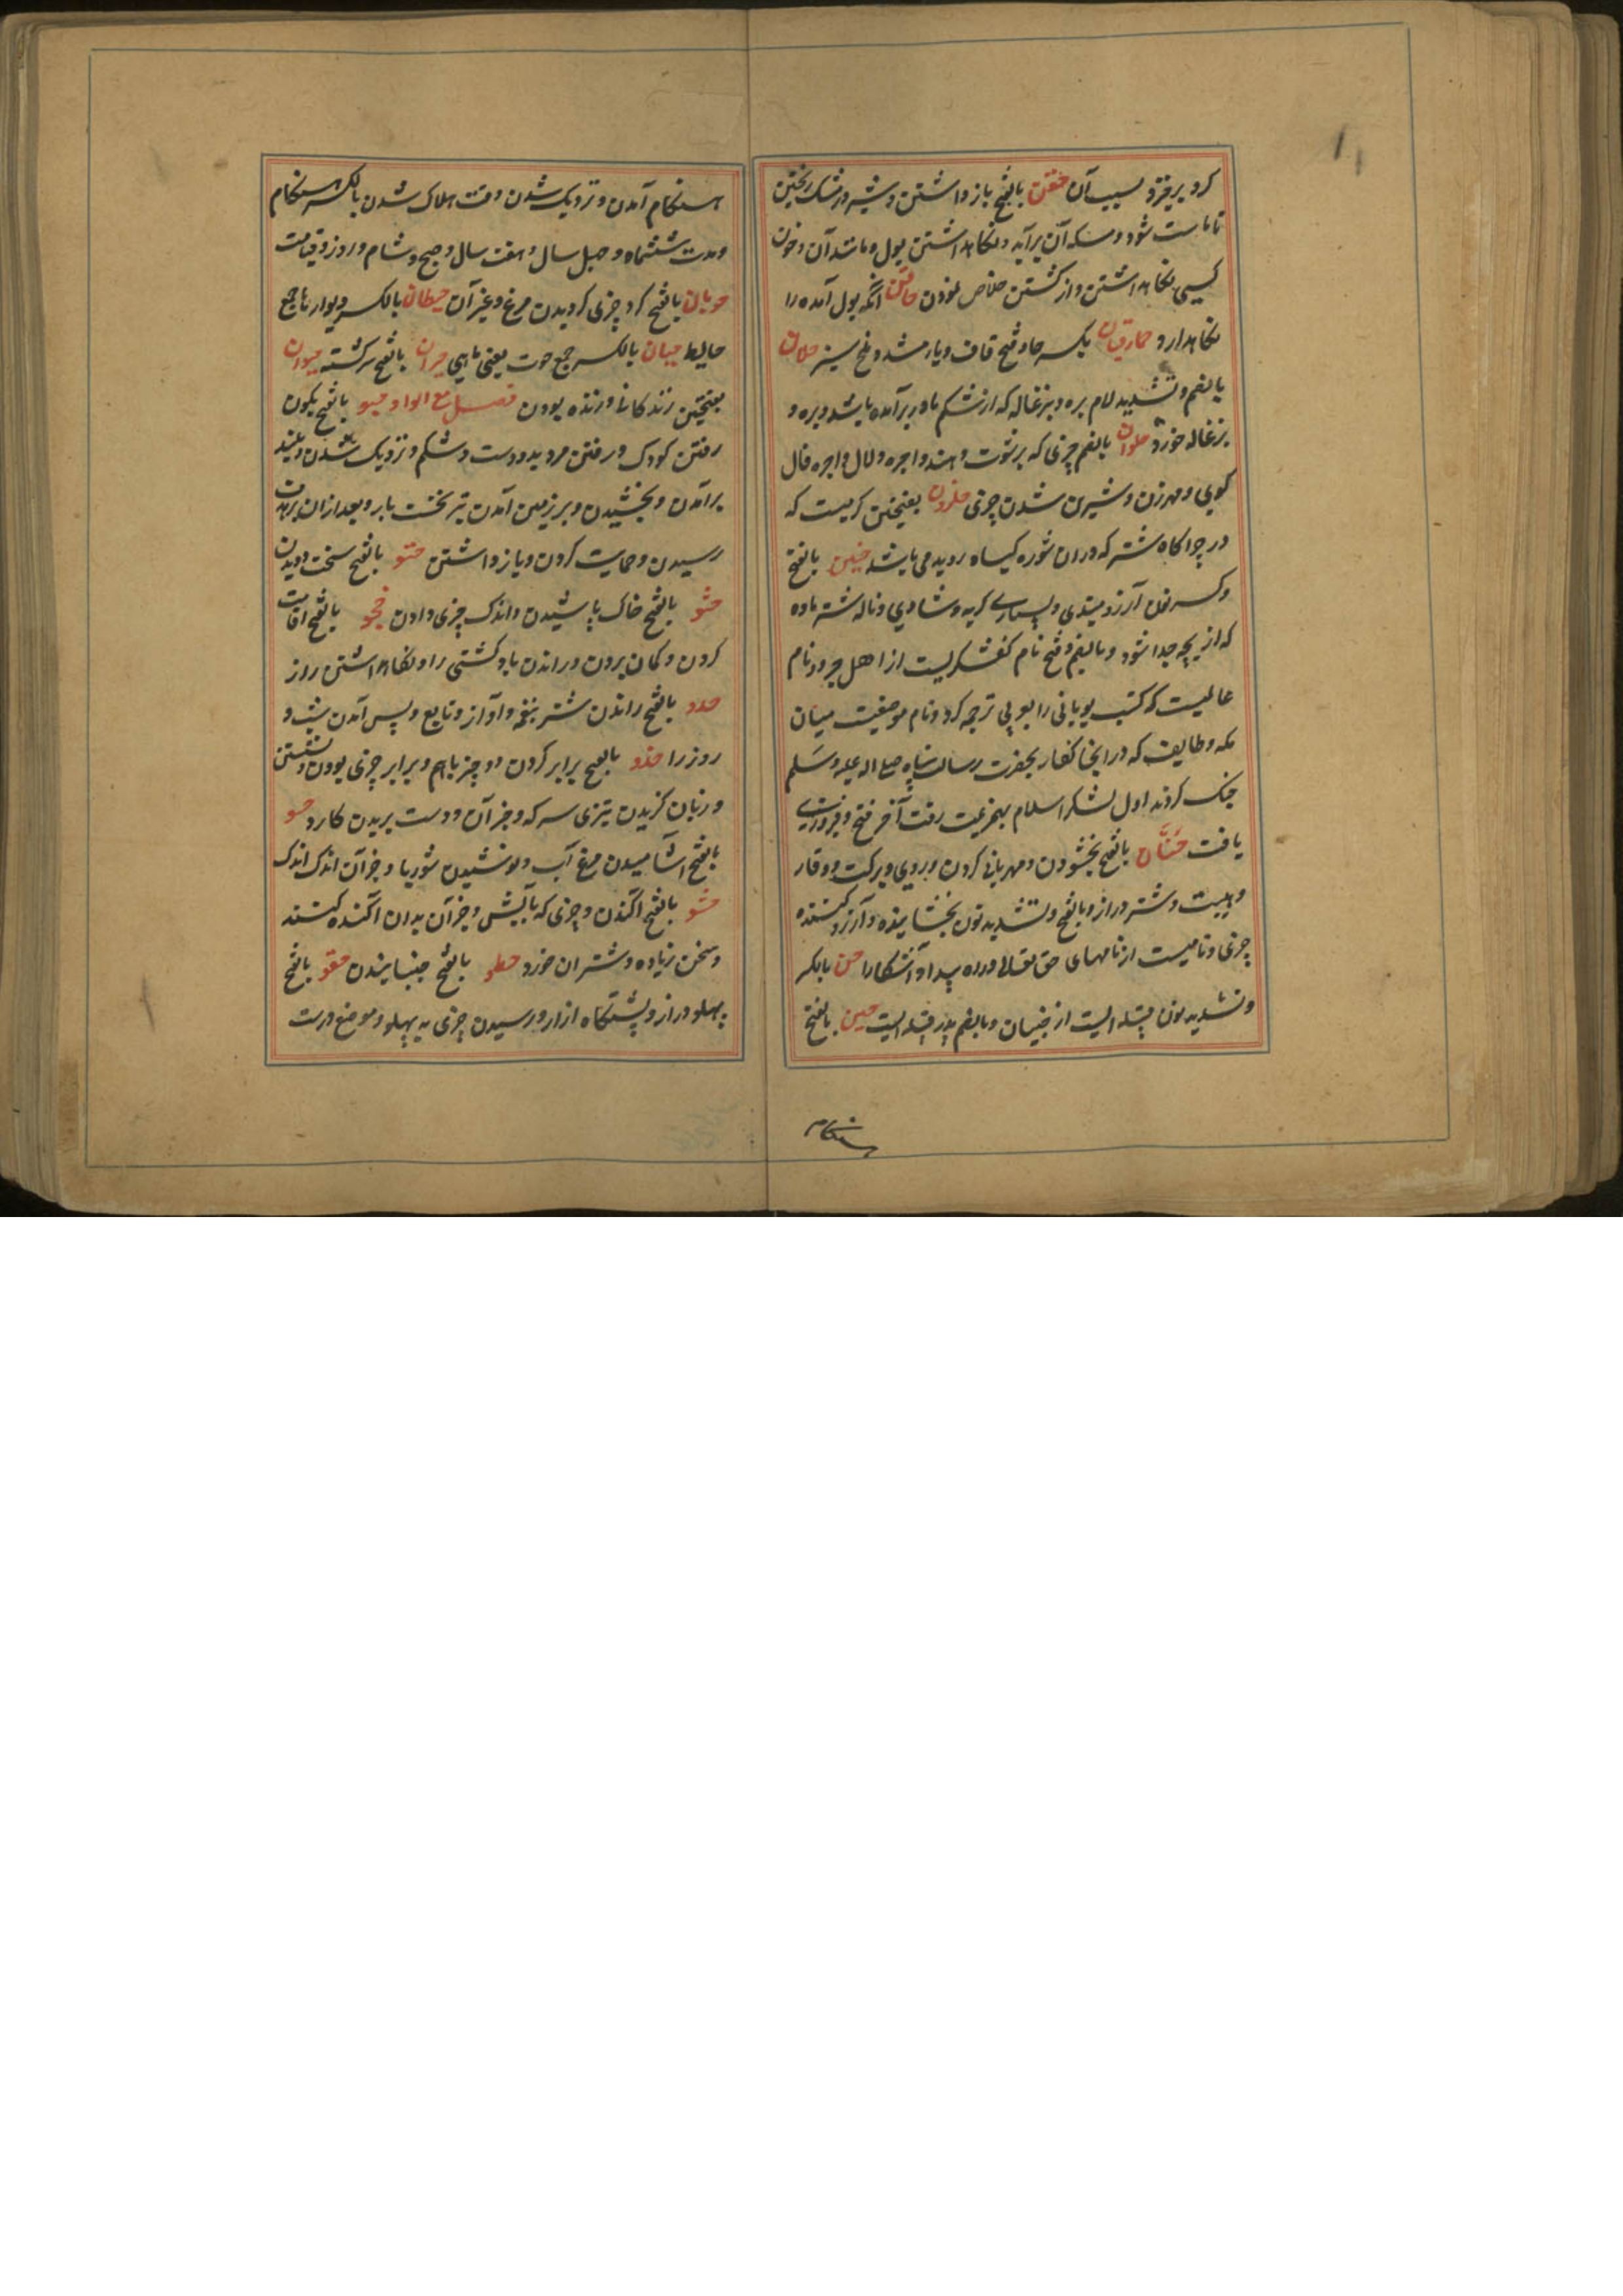 کرد بریزد و بسبب آن حقن بالفتح باز داشتن و شیر در مشک ریختن
تا ماست شود و مسکه آن برآید و نگاهداشتن بول و مانند آن و خون
کسی نگاهداشتن و از کشتن خلاص نمودن حاقن آنکه بول آمده را
نگاهدارد بکسر حا و فتح قاف و یا مشدد حلان
بالضم و تشدید لام بره و بزغاله که از شکم مادر برآمده باشد و بره و
بزغاله خورد حلوان بالضم چیزی که برشوت دهند و اجره دلال و اجره فال
کویی و مهر زن و شیرین شدن چیزی حلزون بفتحتین کرمیست که
در چراکاه شتر که دران شوره کیاه روید می باشد حنین بالفتح
و کسر نون آرزومندی و بسیاری کریه و شادی و ناله شتر ماده
که از بچه جدا شود و بالضم و فتح نام کفشکریست از اهل و نام
عالمیست که کتب یونانی را بعربی ترجمه کرد و نام موضعیست میان
مکه و طایف که در اینجا کفار بحضرت رسالت پناه صلی الله علیه وسلم
جنک کردند اول لشکر اسلام بهزیمت رفت آخر فتح و فیروزی
یافت حنان بالفتح بخشودن و مهربانی کردن و روزی و برکت و وقار
و هیبت و شتر دراز و بالفتح و تشدید نون بخشاینده و آرزو کننده
چیزی و نامیست از نامهای حق تعالی و راه پیدا و آشکارا حن بالکسر
و تشدید نون قبیله ایست از جنیان و بالضم پدر قبیله ایست حین بالفتح
هنکام
هنکام آمدن و نزدیک شدن وقت هلاک شدن بالکسر هنکام
و مدت ششماه و چهل سال و هفت سال و صبح و شام و روز و قیامت
حومان بالفتح کرد چیزی کردیدن مرغ و غیر آن حیطان بالکسر دیوارها جمع
حایط حیتان بالکسر جمع حوت یعنی ماهی حیران بالفتح سرکشته حیوان
بفتحتین زندکانی و زنده بودن فصل مع الواو حبو بالفتح بکون
رفتن کودک و رفتن مرد بدو دست و شکم و نزدیک شدن و بلند
برآمدن و بخشیدن و بر زمین آمدن تیر نخست بار و بعد ازان بر نشان
رسیدن و حمایت کردن و باز داشتن حتو بالفتح سخت دویدن
حثو بالفتح خاک پاشیدن و اندک چیزی دادن حجو بالفتح اقامت
کردن و کمان بردن و راندن باد کشتی را و نکاهداشتن راز
حدو بالفتح راندن شتر بنغمه و آواز و تابع و پس آمدن شب و
روز را حذو بالفتح برابر کردن دو چیز باهم و برابر چیزی بودن و نشستن
و زبان کزیدن تیزی سرکه و جز آن و دست بریدن کارد حسو
بالفتح آشامیدن مرغ آب و نوشیدن شوربا و جز آن اندک اندک
حشو بالفتح آکندن و چیزی که بالش و جز آن بدان آکنده کنند
و سخن زیاده و شتران خورد حطو بالفتح جنبانیدن حقو بالفتح
پهلو و ازار و پشتکاه ازار و رسیدن چیزی به پهلو و موضع درست